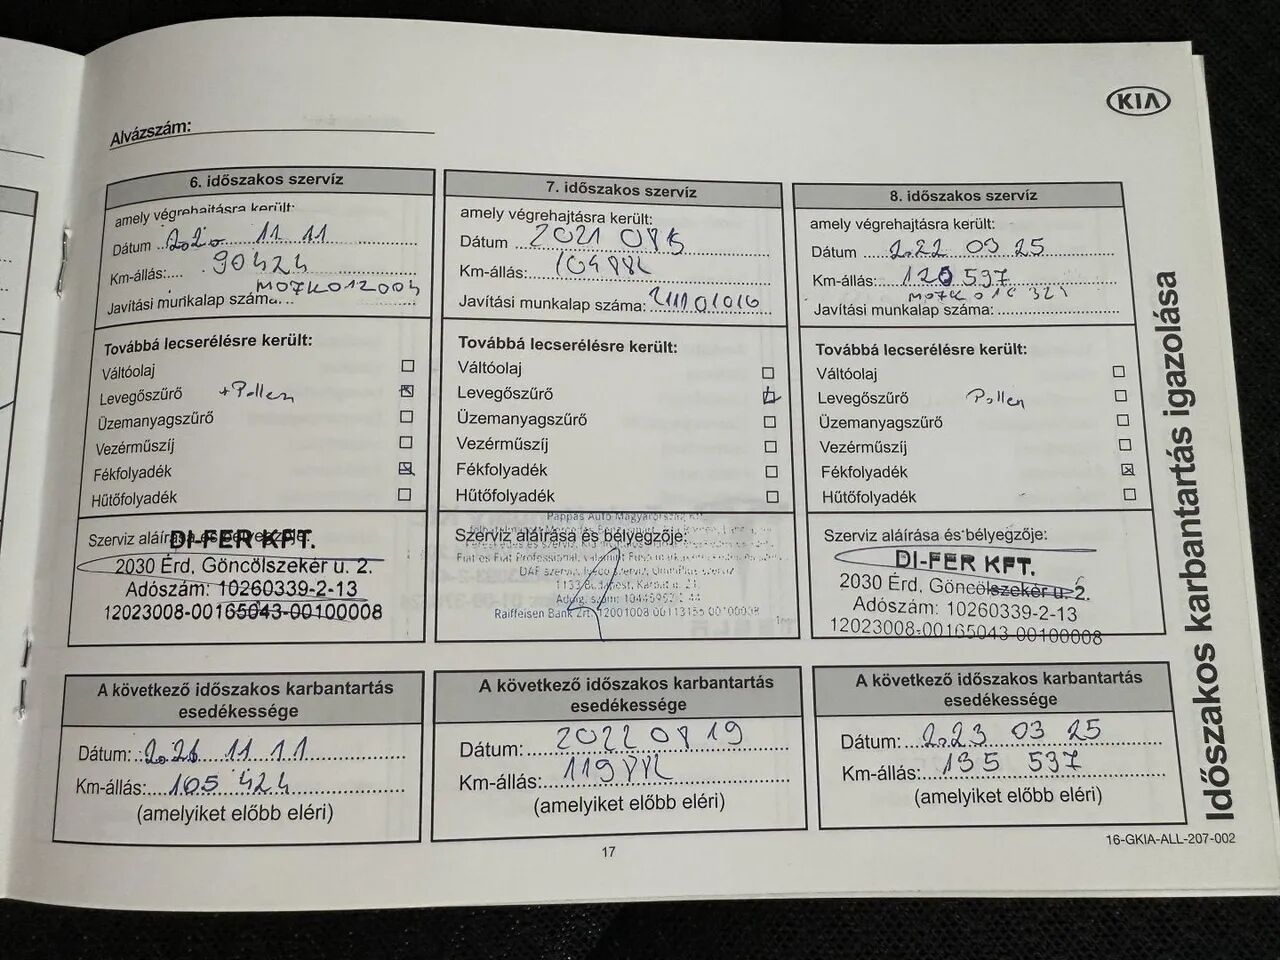 KIA
Alvázszám:
6. időszakos szervíz
amely végrehajtásra került:
Dátum 2020 11 11
Km-állás: 90424
M07K012004
Javítási munkalap száma:
Továbbá lecserélésre került:
Váltóolaj
Levegőszűrő + Pollen
Üzemanyagszűrő
Vezérműszíj
Fékfolyadék
Hűtőfolyadék
Szerviz aláírása és bélyegzője:
DI-FER KFT.
2030 Érd, Göncölszekér u. 2.
Adószám: 10260339-2-13
12023008-00165043-00100008
A következő időszakos karbantartás
esedékessége
Dátum: 2021 11 11
Km-állás: 105 424
(amelyiket előbb eléri)
7. időszakos szervíz
amely végrehajtásra került:
Dátum 2021
Km-állás:
Javítási munkalap száma:
Továbbá lecserélésre került:
Váltóolaj
Levegőszűrő
Üzemanyagszűrő
Vezérműszíj
Fékfolyadék
Hűtőfolyadék
Pappas Auto Magyarország
Szerviz aláírása és bélyegzője:
1133 Budapest, Kárpát u. 21.
Raiffeisen Bank Zrt.
A következő időszakos karbantartás
esedékessége
Dátum: 2022 08 19
Km-állás:
(amelyiket előbb eléri)
8. időszakos szervíz
amely végrehajtásra került:
Dátum 2022 03 25
Km-állás: 120 537
Javítási munkalap száma:
Továbbá lecserélésre került:
Váltóolaj
Levegőszűrő Pollen
Üzemanyagszűrő
Vezérműszíj
Fékfolyadék
Hűtőfolyadék
Szerviz aláírása és bélyegzője:
DI-FER KFT.
2030 Érd, Göncölszekér u. 2.
Adószám: 10260339-2-13
12023008-00165043-00100008
A következő időszakos karbantartás
esedékessége
Dátum: 2023 03 25
Km-állás: 135 537
(amelyiket előbb eléri)
Időszakos karbantartás igazolása
17
16-GKIA-ALL-207-002